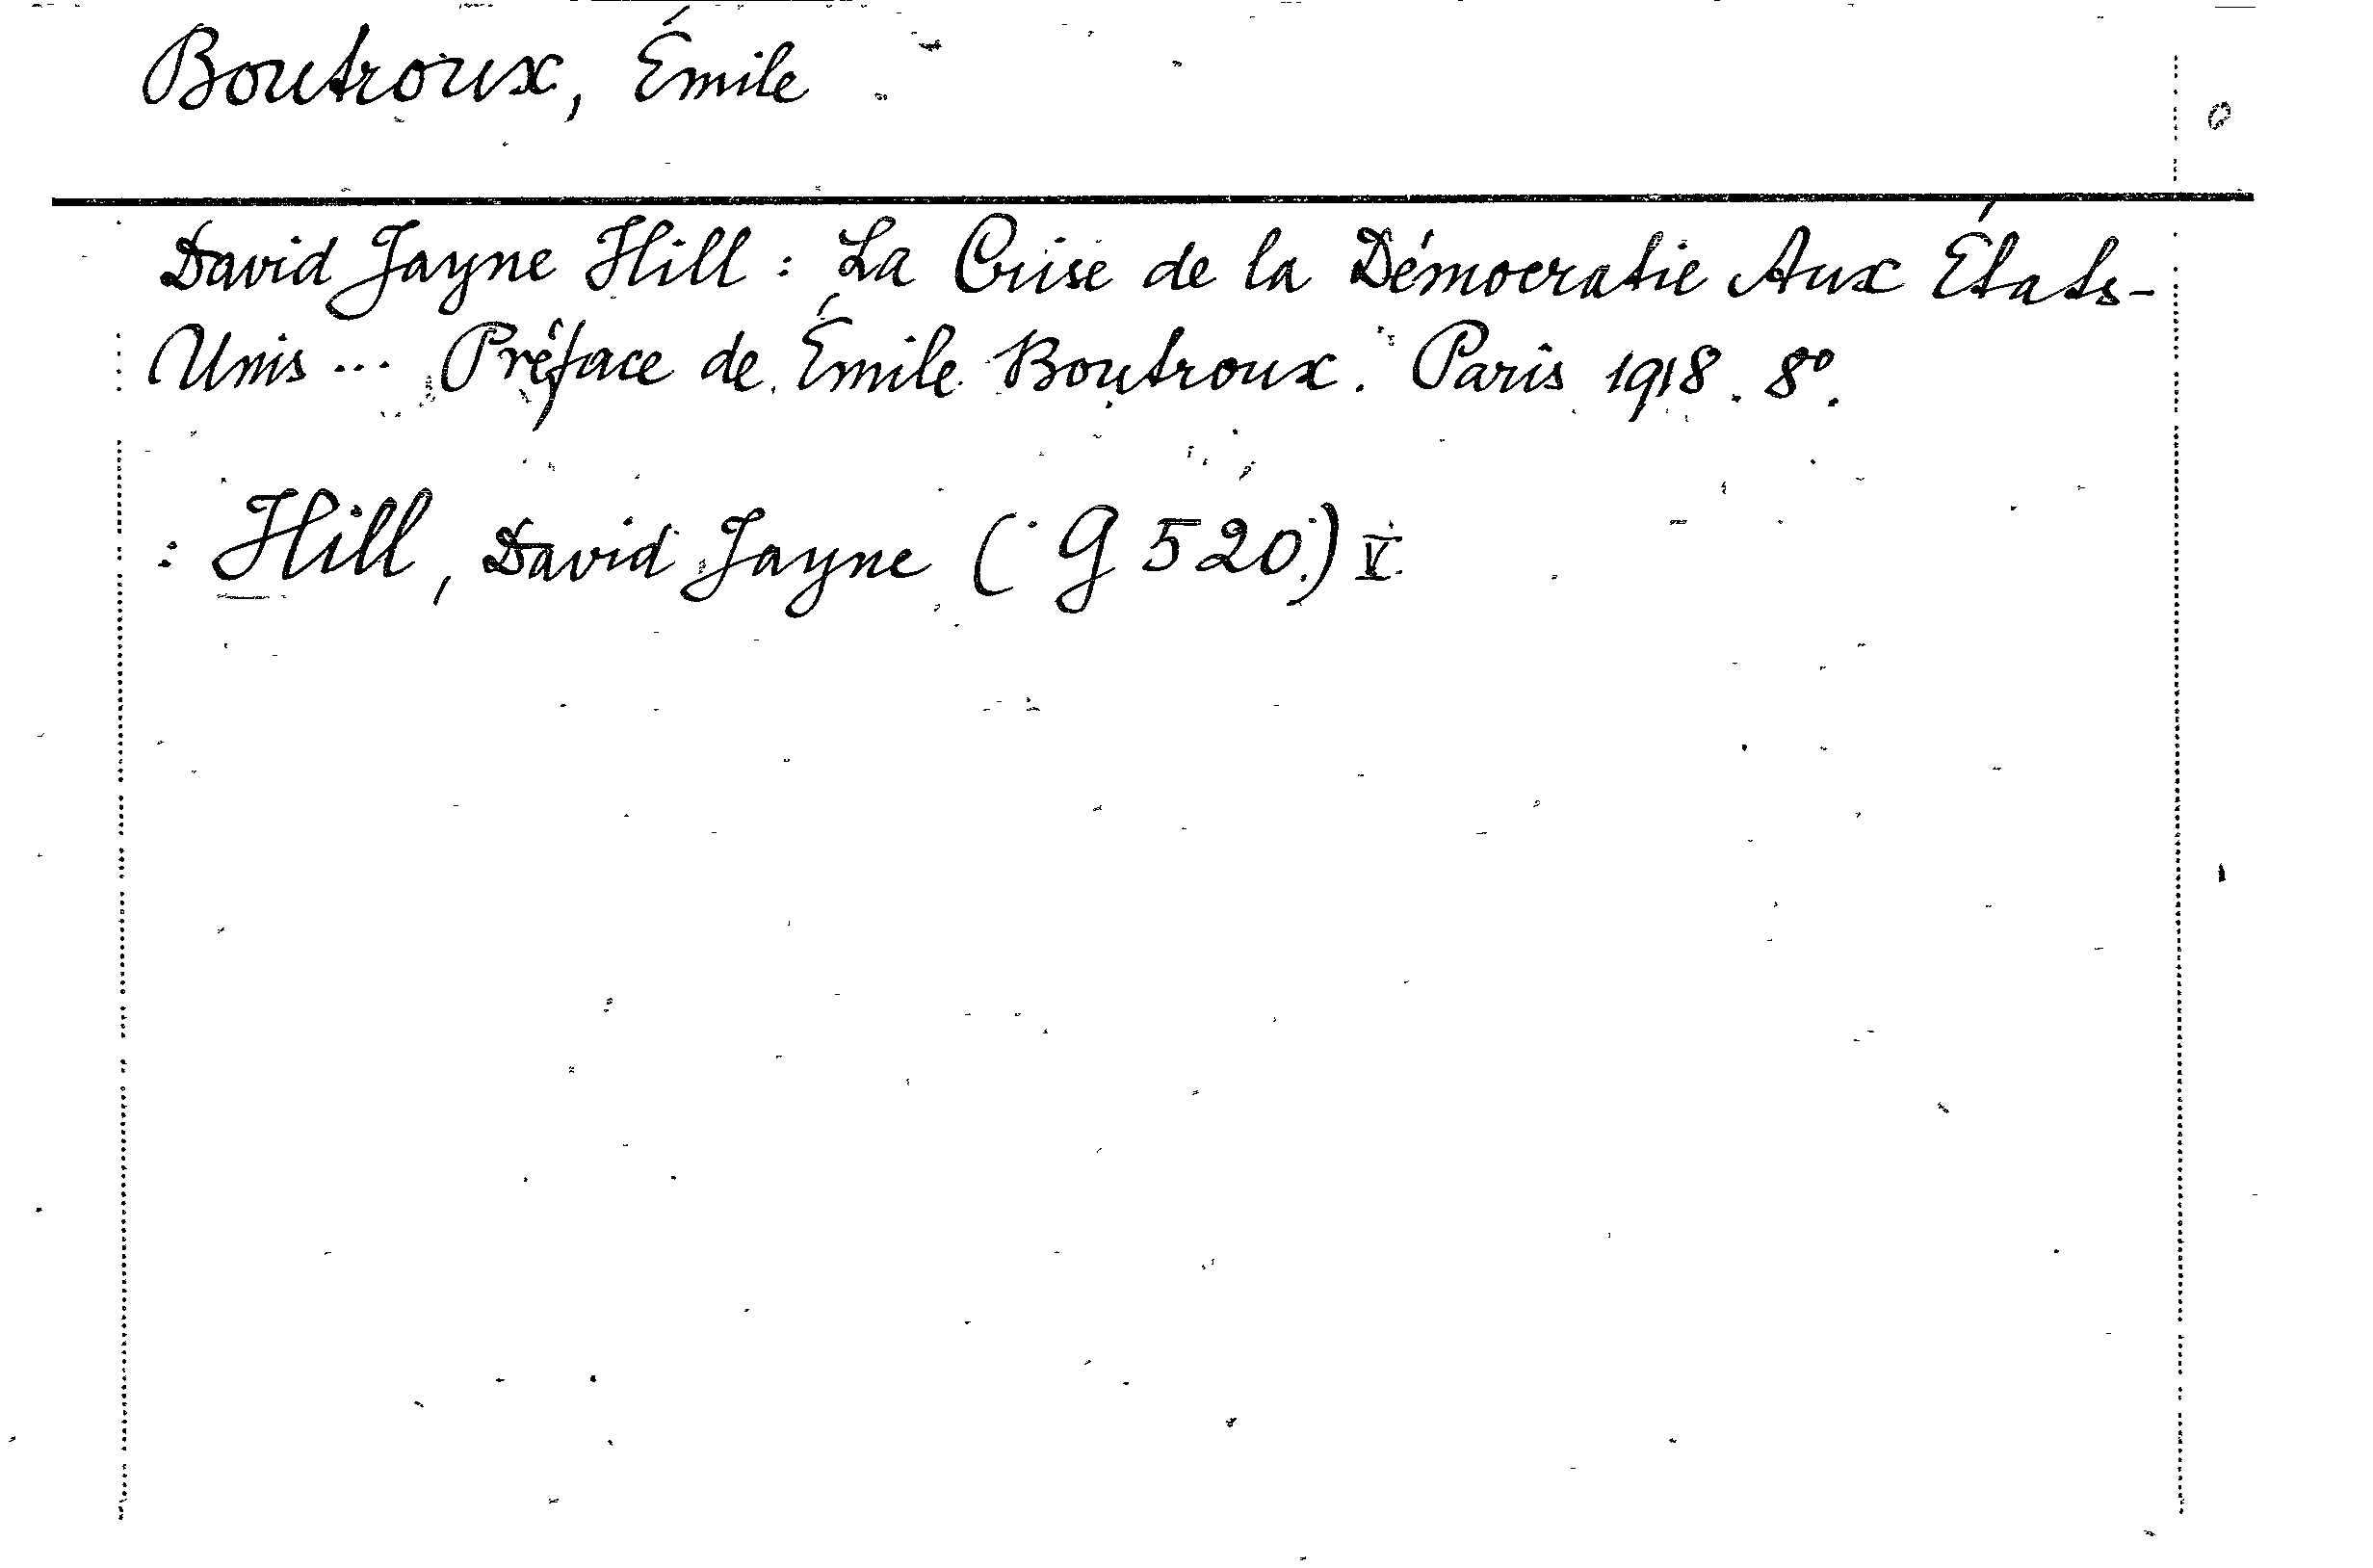 Boutroux, Émile
David Jayne Hill : La Crise de la Démocratie Aux États-
Unis ... Préface de Émile Boutroux. Paris 1918. 8º.
: Hill, David Jayne ( G 520.) V